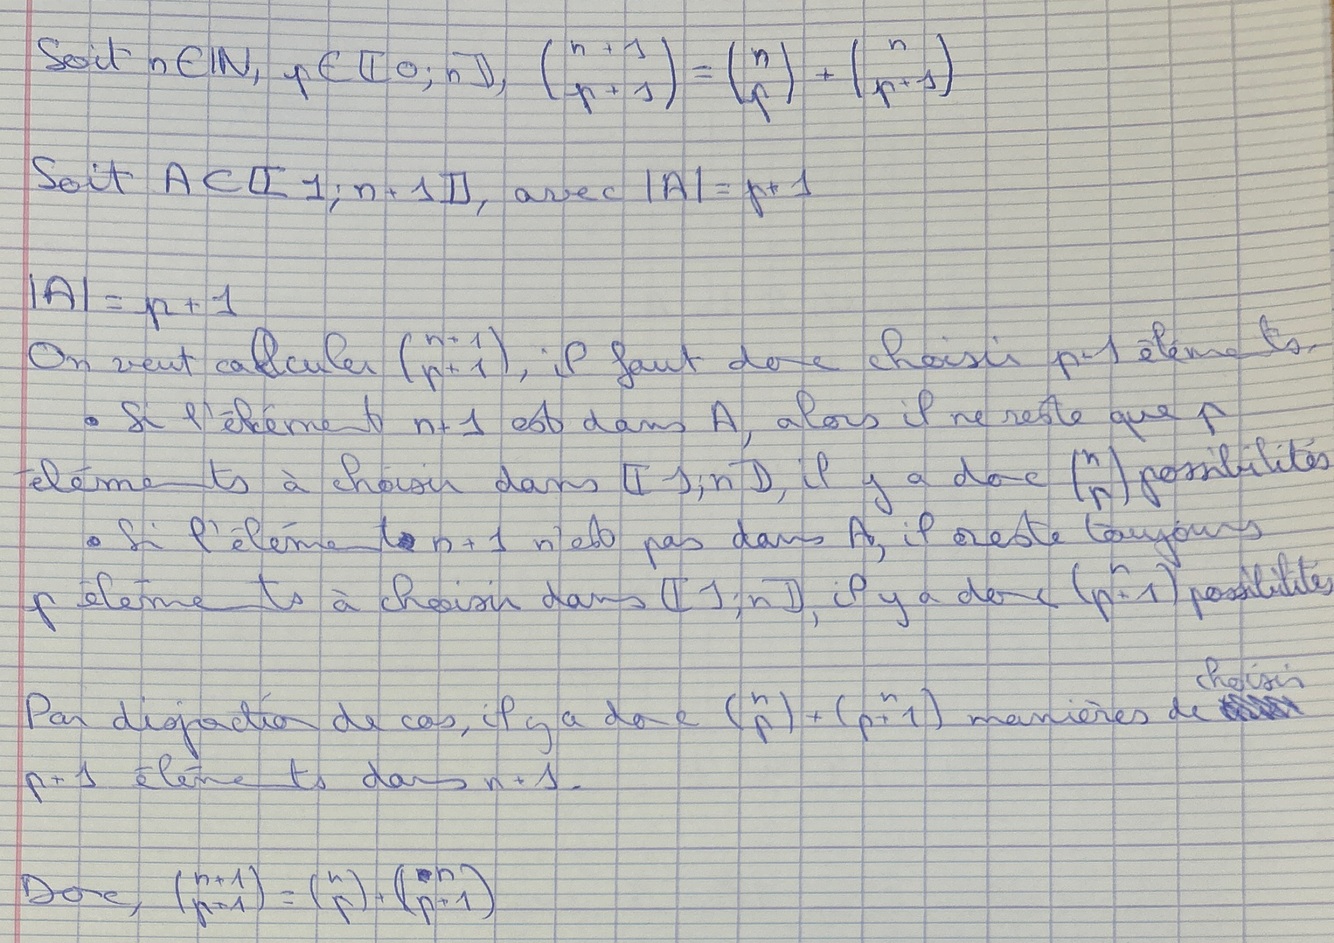 Soit n∈ℕ, p∈⟦0;n⟧, (n+1 p+1) = (n p) + (n p+1)
Soit A⊂⟦1;n+1⟧, avec |A| = p+1
|A| = p+1
On veut calculer (n+1 p+1), il faut donc choisir p+1 éléments.
• Si l'élément n+1 est dans A, alors il ne reste que p
éléments à choisir dans ⟦1;n⟧, il y a donc (n p) possibilités
• Si l'élément n+1 n'est pas dans A, il reste toujours
p éléments à choisir dans ⟦1;n⟧, il y a donc (n p+1) possibilités
Par disjonction de cas, il y a donc (n p) + (n p+1) manières de choisir
p+1 éléments dans n+1.
Donc, (n+1 p+1) = (n p) + (n p+1)